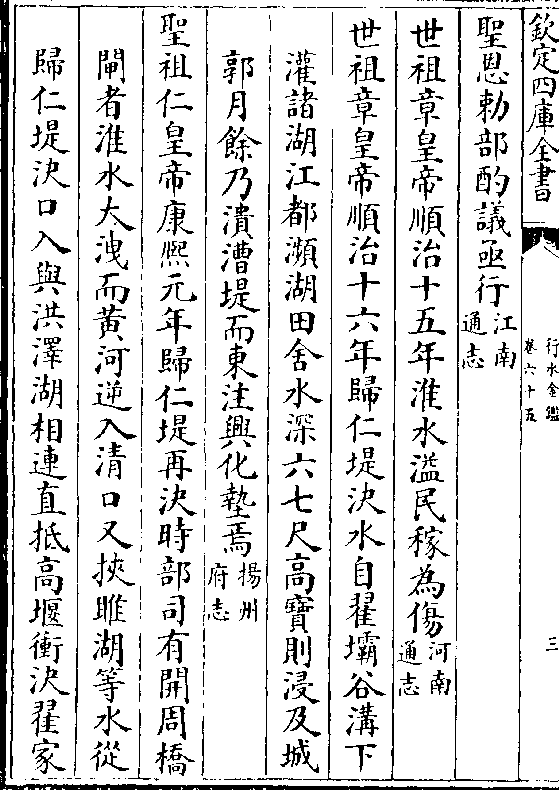 欽定四庫全書
行水金鑑
卷六十五
三
聖恩勅部酌議亟行江南通志
世祖章皇帝順治十五年淮水溢民稼為傷河南通志
世祖章皇帝順治十六年歸仁堤決水自翟壩谷溝下
灌諸湖江都瀕湖田舍水深六七尺高寶則浸及城
郭月餘乃潰漕堤而東注興化墊焉揚州府志
聖祖仁皇帝康熙元年歸仁堤再決時部司有開周橋
閘者淮水大洩而黃河逆入清口又挾睢湖等水從
歸仁堤決口入與洪澤湖相連直抵高堰衝決翟家